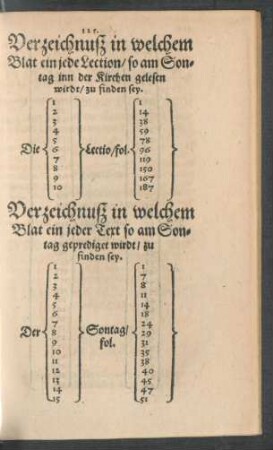 Verzeichnuſz in welchem
Blat ein jede Lection/ ſo am Son-
tag inn der Kirchen geleſen
wirdt/ zu finden ſey.
1 1
2 14
3 38
4 59
5 78
Die 6 Lectio/ fol. 96
7 119
8 150
9 167
10 187
Verzeichnuſz in welchem
Blat ein jeder Text ſo am Son-
tag geprediget wirdt/ zu
finden ſey.
1 1
2 7
3 8
4 11
5 14
6 18
Der 7 Sontag/ 24
8 fol. 29
9 31
10 35
11 38
12 40
13 45
14 47
15 51